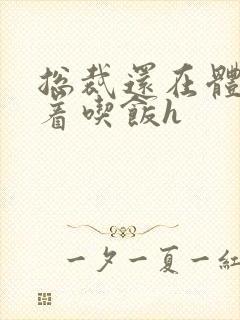 總裁還在體
着喫飯h
一夕一夏一紅